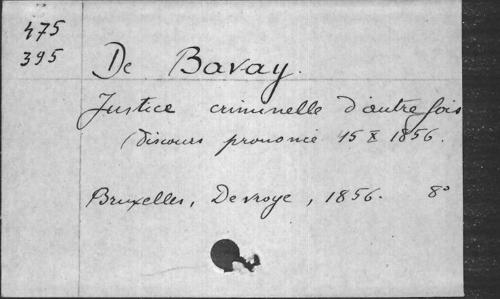 475
395
De Bavay.
Justice criminelle d'autrefois
(discours prononcé 15 X 1856.
Bruxelles, Devroye, 1856. 8°